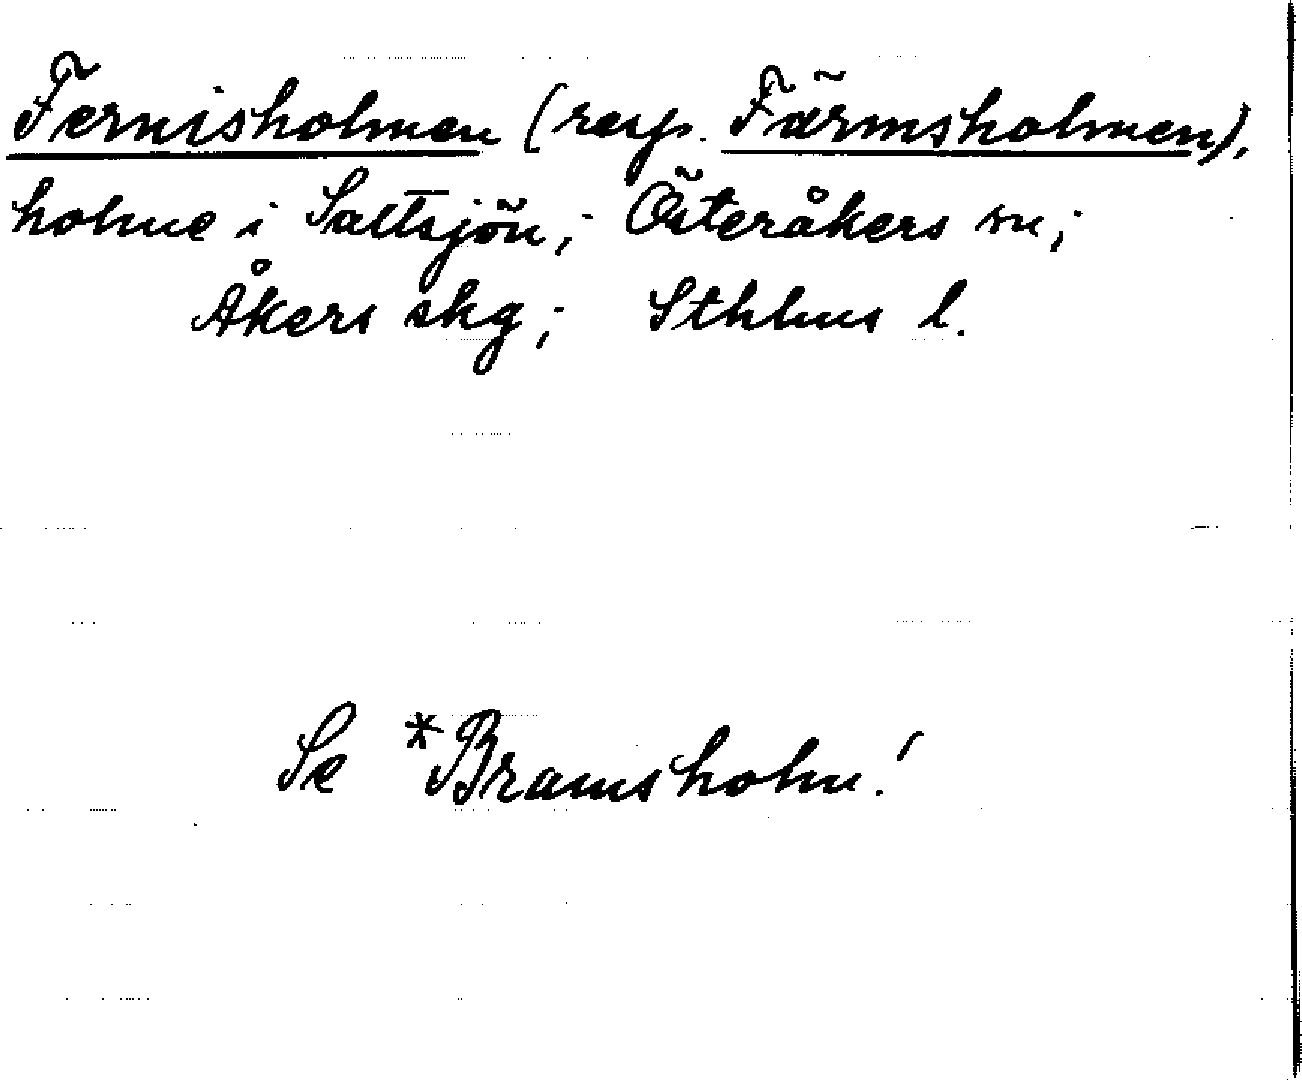 Fernisholmen (resp. Färmsholmen),
holme i Saltsjön; Österåkers sn;
Åkers skg; Sthlms l.
Se *Bramsholm!